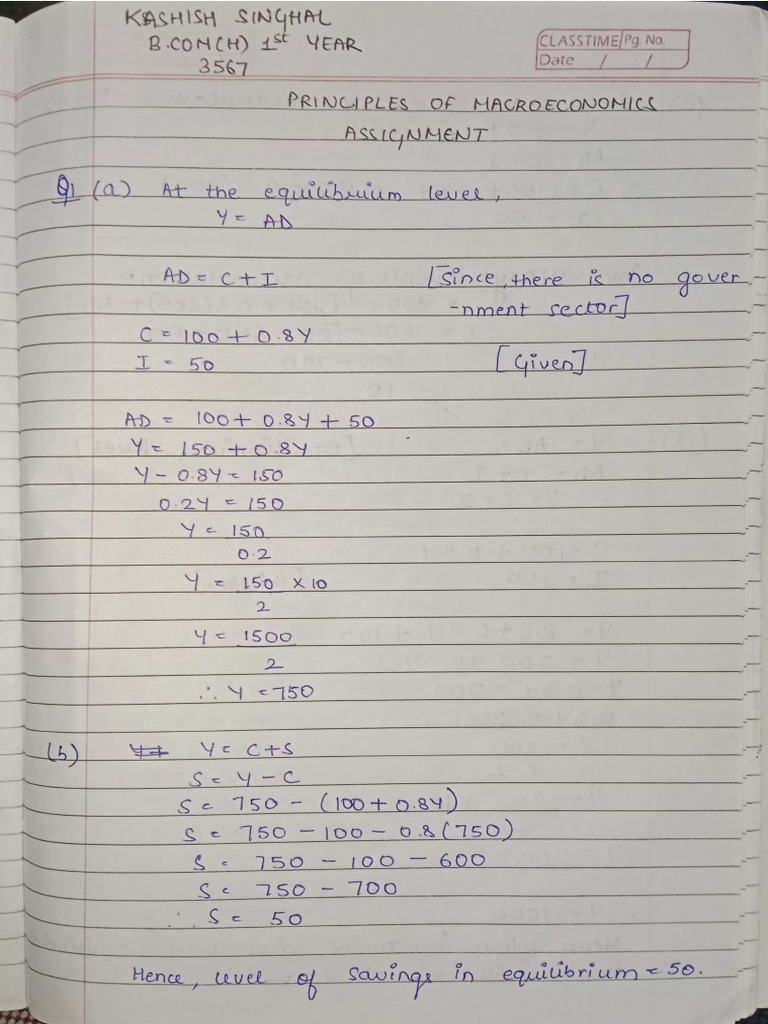 KASHISH SINGHAL
B.COM(H) 1st YEAR
3567
CLASSTIME Pg. No.
Date / /
PRINCIPLES OF MACROECONOMICS
ASSIGNMENT
Q1 (a) At the equilibrium level,
Y = AD
AD = C + I [Since, there is no gover
-nment sector]
C = 100 + 0.8Y
I = 50 [Given]
AD = 100 + 0.8Y + 50
Y = 150 + 0.8Y
Y - 0.8Y = 150
0.2Y = 150
Y = 150
0.2
Y = 150 × 10
2
Y = 1500
2
∴ Y = 750
(b) Y = C + S
S = Y - C
S = 750 - (100 + 0.8Y)
S = 750 - 100 - 0.8(750)
S = 750 - 100 - 600
S = 750 - 700
∴ S = 50
Hence, level of savings in equilibrium = 50.